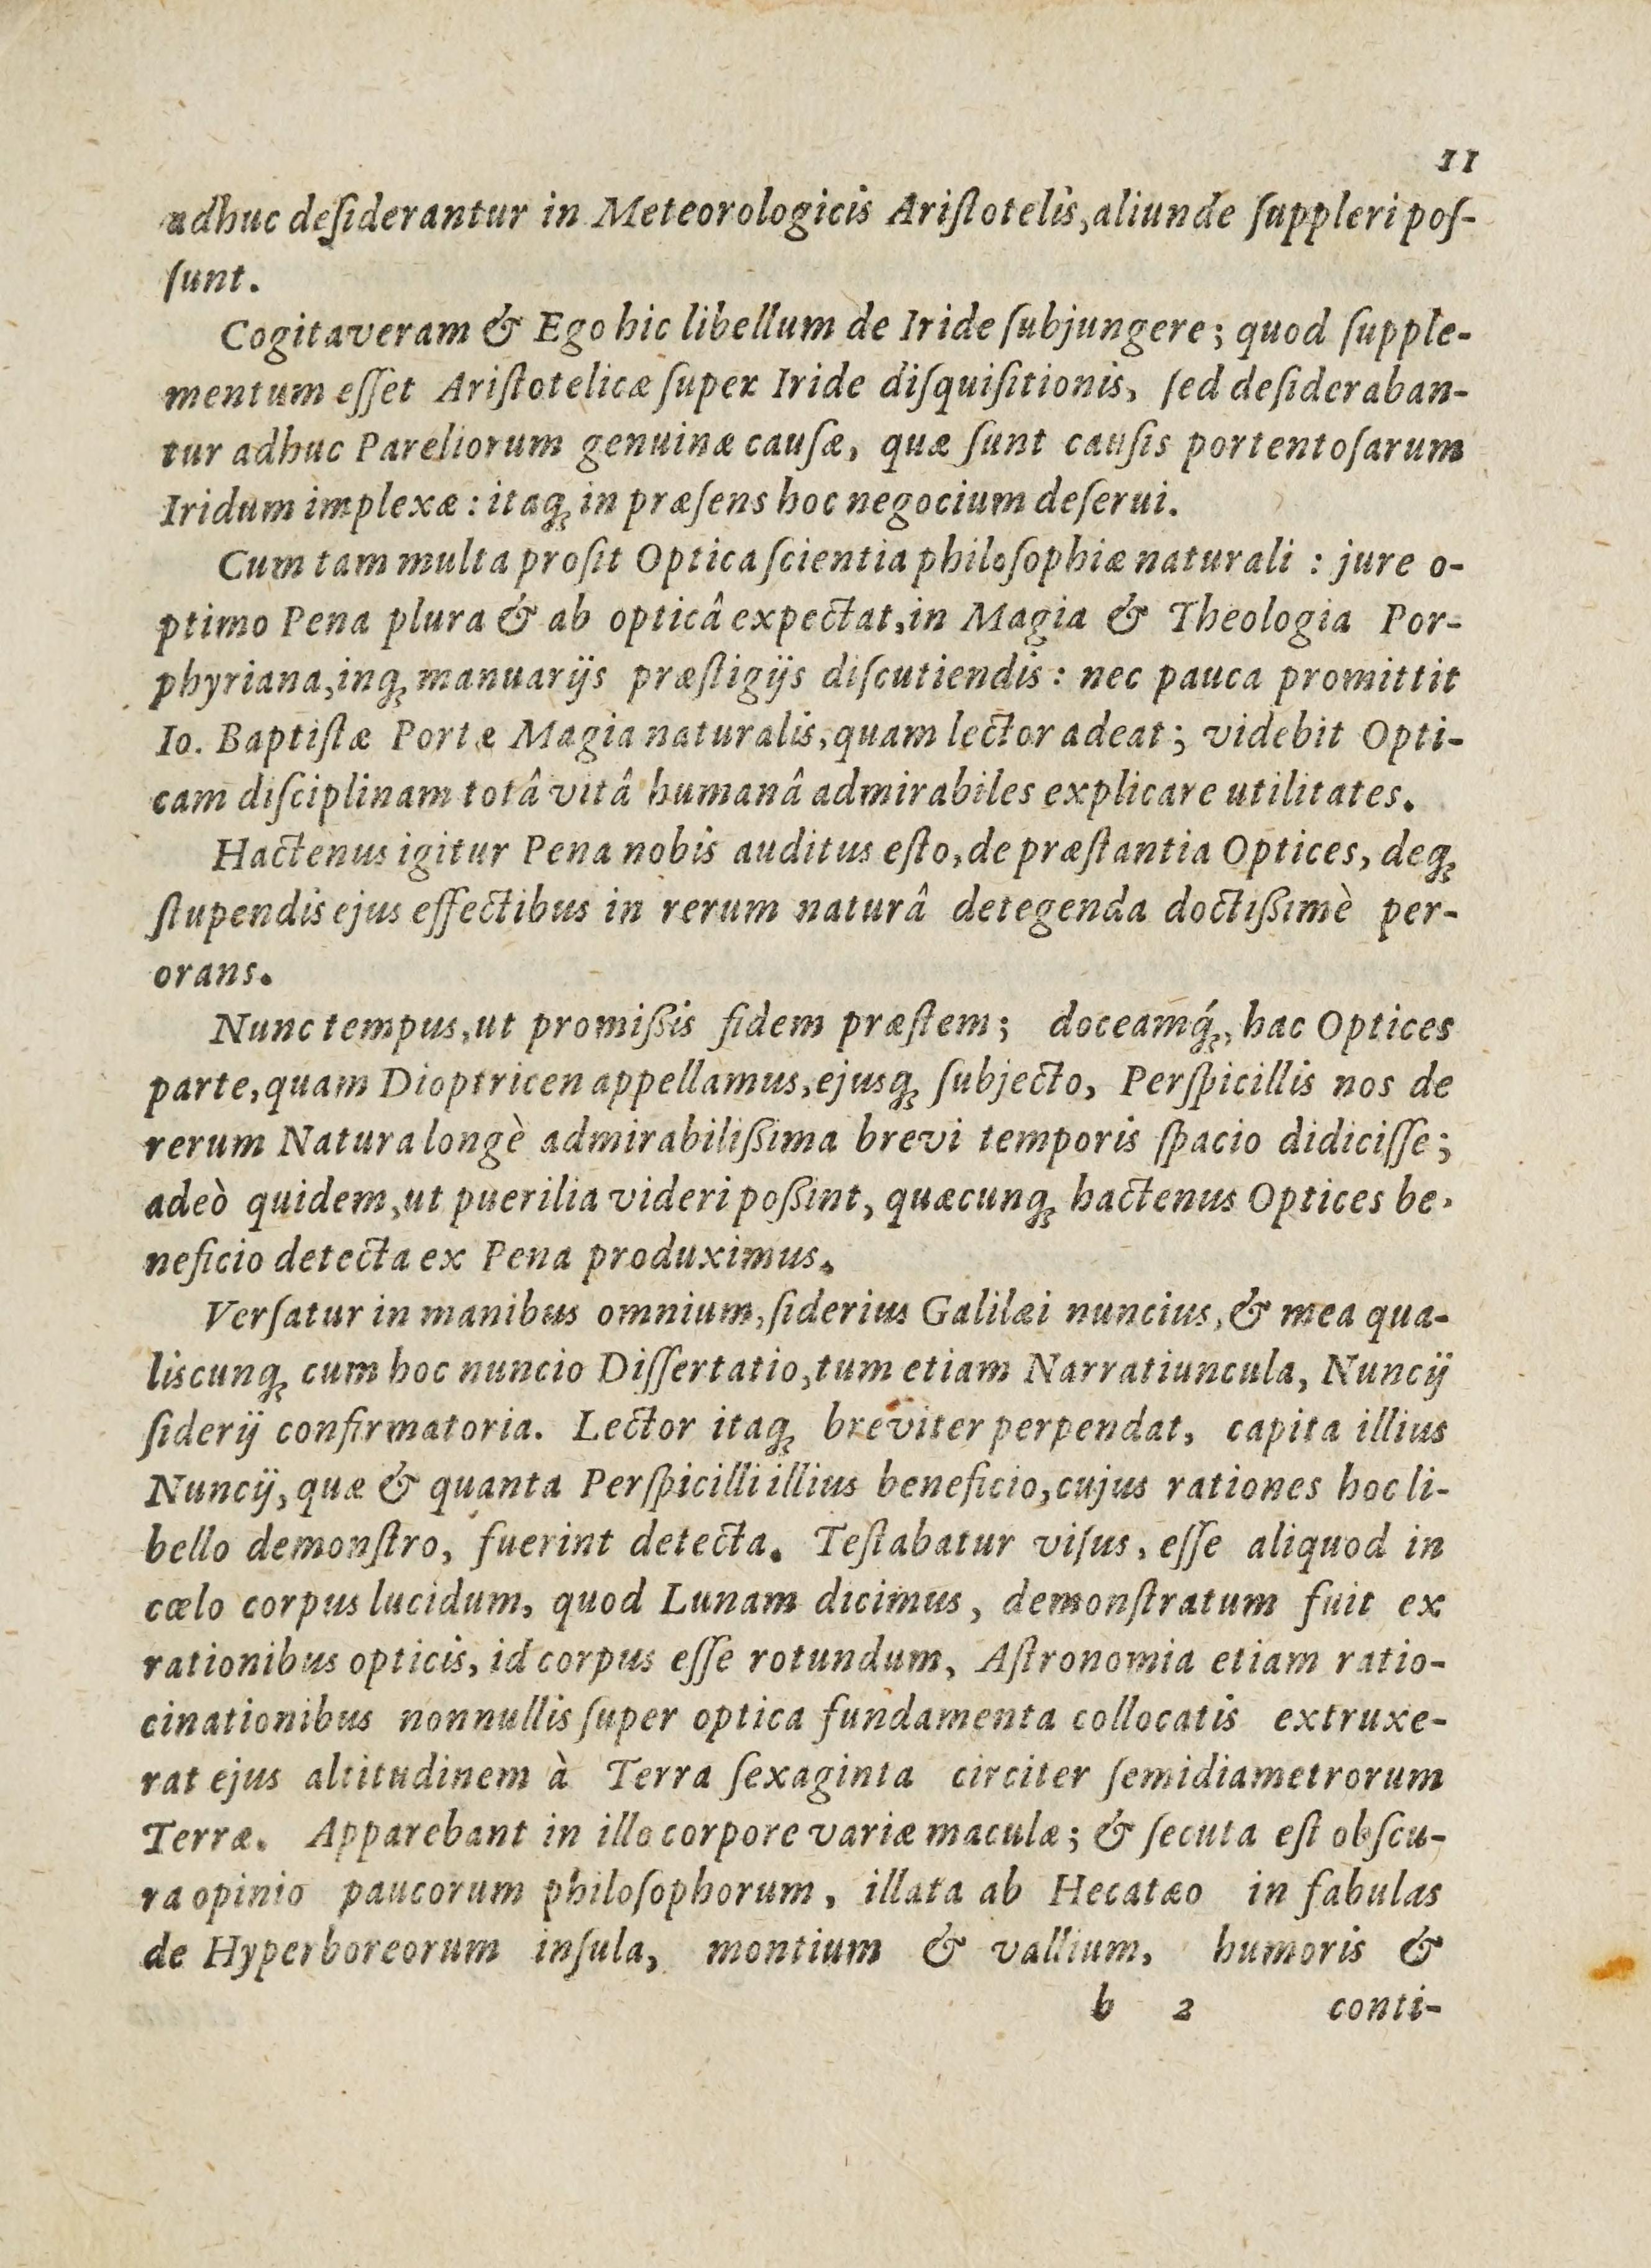 11
adhuc deſiderantur in Meteorologicis Ariſtotelis, aliunde ſuppleri poſ-
ſunt.
Cogitaveram & Ego hic libellum de Iride ſubjungere; quod ſupple-
mentum eſſet Ariſtotelicæ ſuper Iride diſquiſitionis, ſed deſideraban-
tur adhuc Pareliorum genuinæ cauſæ, quæ ſunt cauſis portentoſarum
Iridum implexæ: itaq; in præſens hoc negocium deſerui.
Cum tam multa proſit Optica ſcientia philoſophiæ naturali : jure o-
ptimo Pena plura & ab opticâ expectat, in Magia & Theologia Por-
phyriana, inq; manuarijs præſtigijs diſcutiendis: nec pauca promittit
Io. Baptiſtæ Portæ Magia naturalis, quam lector adeat; videbit Opti-
cam diſciplinam totâ vitâ humanâ admirabiles explicare utilitates.
Hactenus igitur Pena nobis auditus eſto, de præſtantia Optices, deq;
ſtupendis ejus effectibus in rerum naturâ detegenda doctißimè per-
orans.
Nunc tempus, ut promißis fidem præſtem; doceamq́;, hac Optices
parte, quam Dioptricen appellamus, ejusq; ſubjecto, Perſpicillis nos de
rerum Natura longè admirabilißima brevi temporis ſpacio didiciſſe;
adeò quidem, ut puerilia videri poßint, quæcunq; hactenus Optices be-
neficio detecta ex Pena produximus.
Verſatur in manibus omnium, ſiderius Galilæi nuncius, & mea qua-
liscunq; cum hoc nuncio Diſſertatio, tum etiam Narratiuncula, Nuncij
ſiderij confirmatoria. Lector itaq; breviter perpendat, capita illius
Nuncij, quæ & quanta Perſpicilli illius beneficio, cujus rationes hoc li-
bello demonſtro, fuerint detecta. Teſtabatur viſus, eſſe aliquod in
cœlo corpus lucidum, quod Lunam dicimus, demonſtratum fuit ex
rationibus opticis, id corpus eſſe rotundum, Aſtronomia etiam ratio-
cinationibus nonnullis ſuper optica fundamenta collocatis extruxe-
rat ejus altitudinem à Terra ſexaginta circiter ſemidiametrorum
Terræ. Apparebant in illo corpore variæ maculæ; & ſecuta eſt obſcu-
ra opinio paucorum philoſophorum, illata ab Hecatæo in fabulas
de Hyperboreorum inſula, montium & vallium, humoris &
b 2 conti-